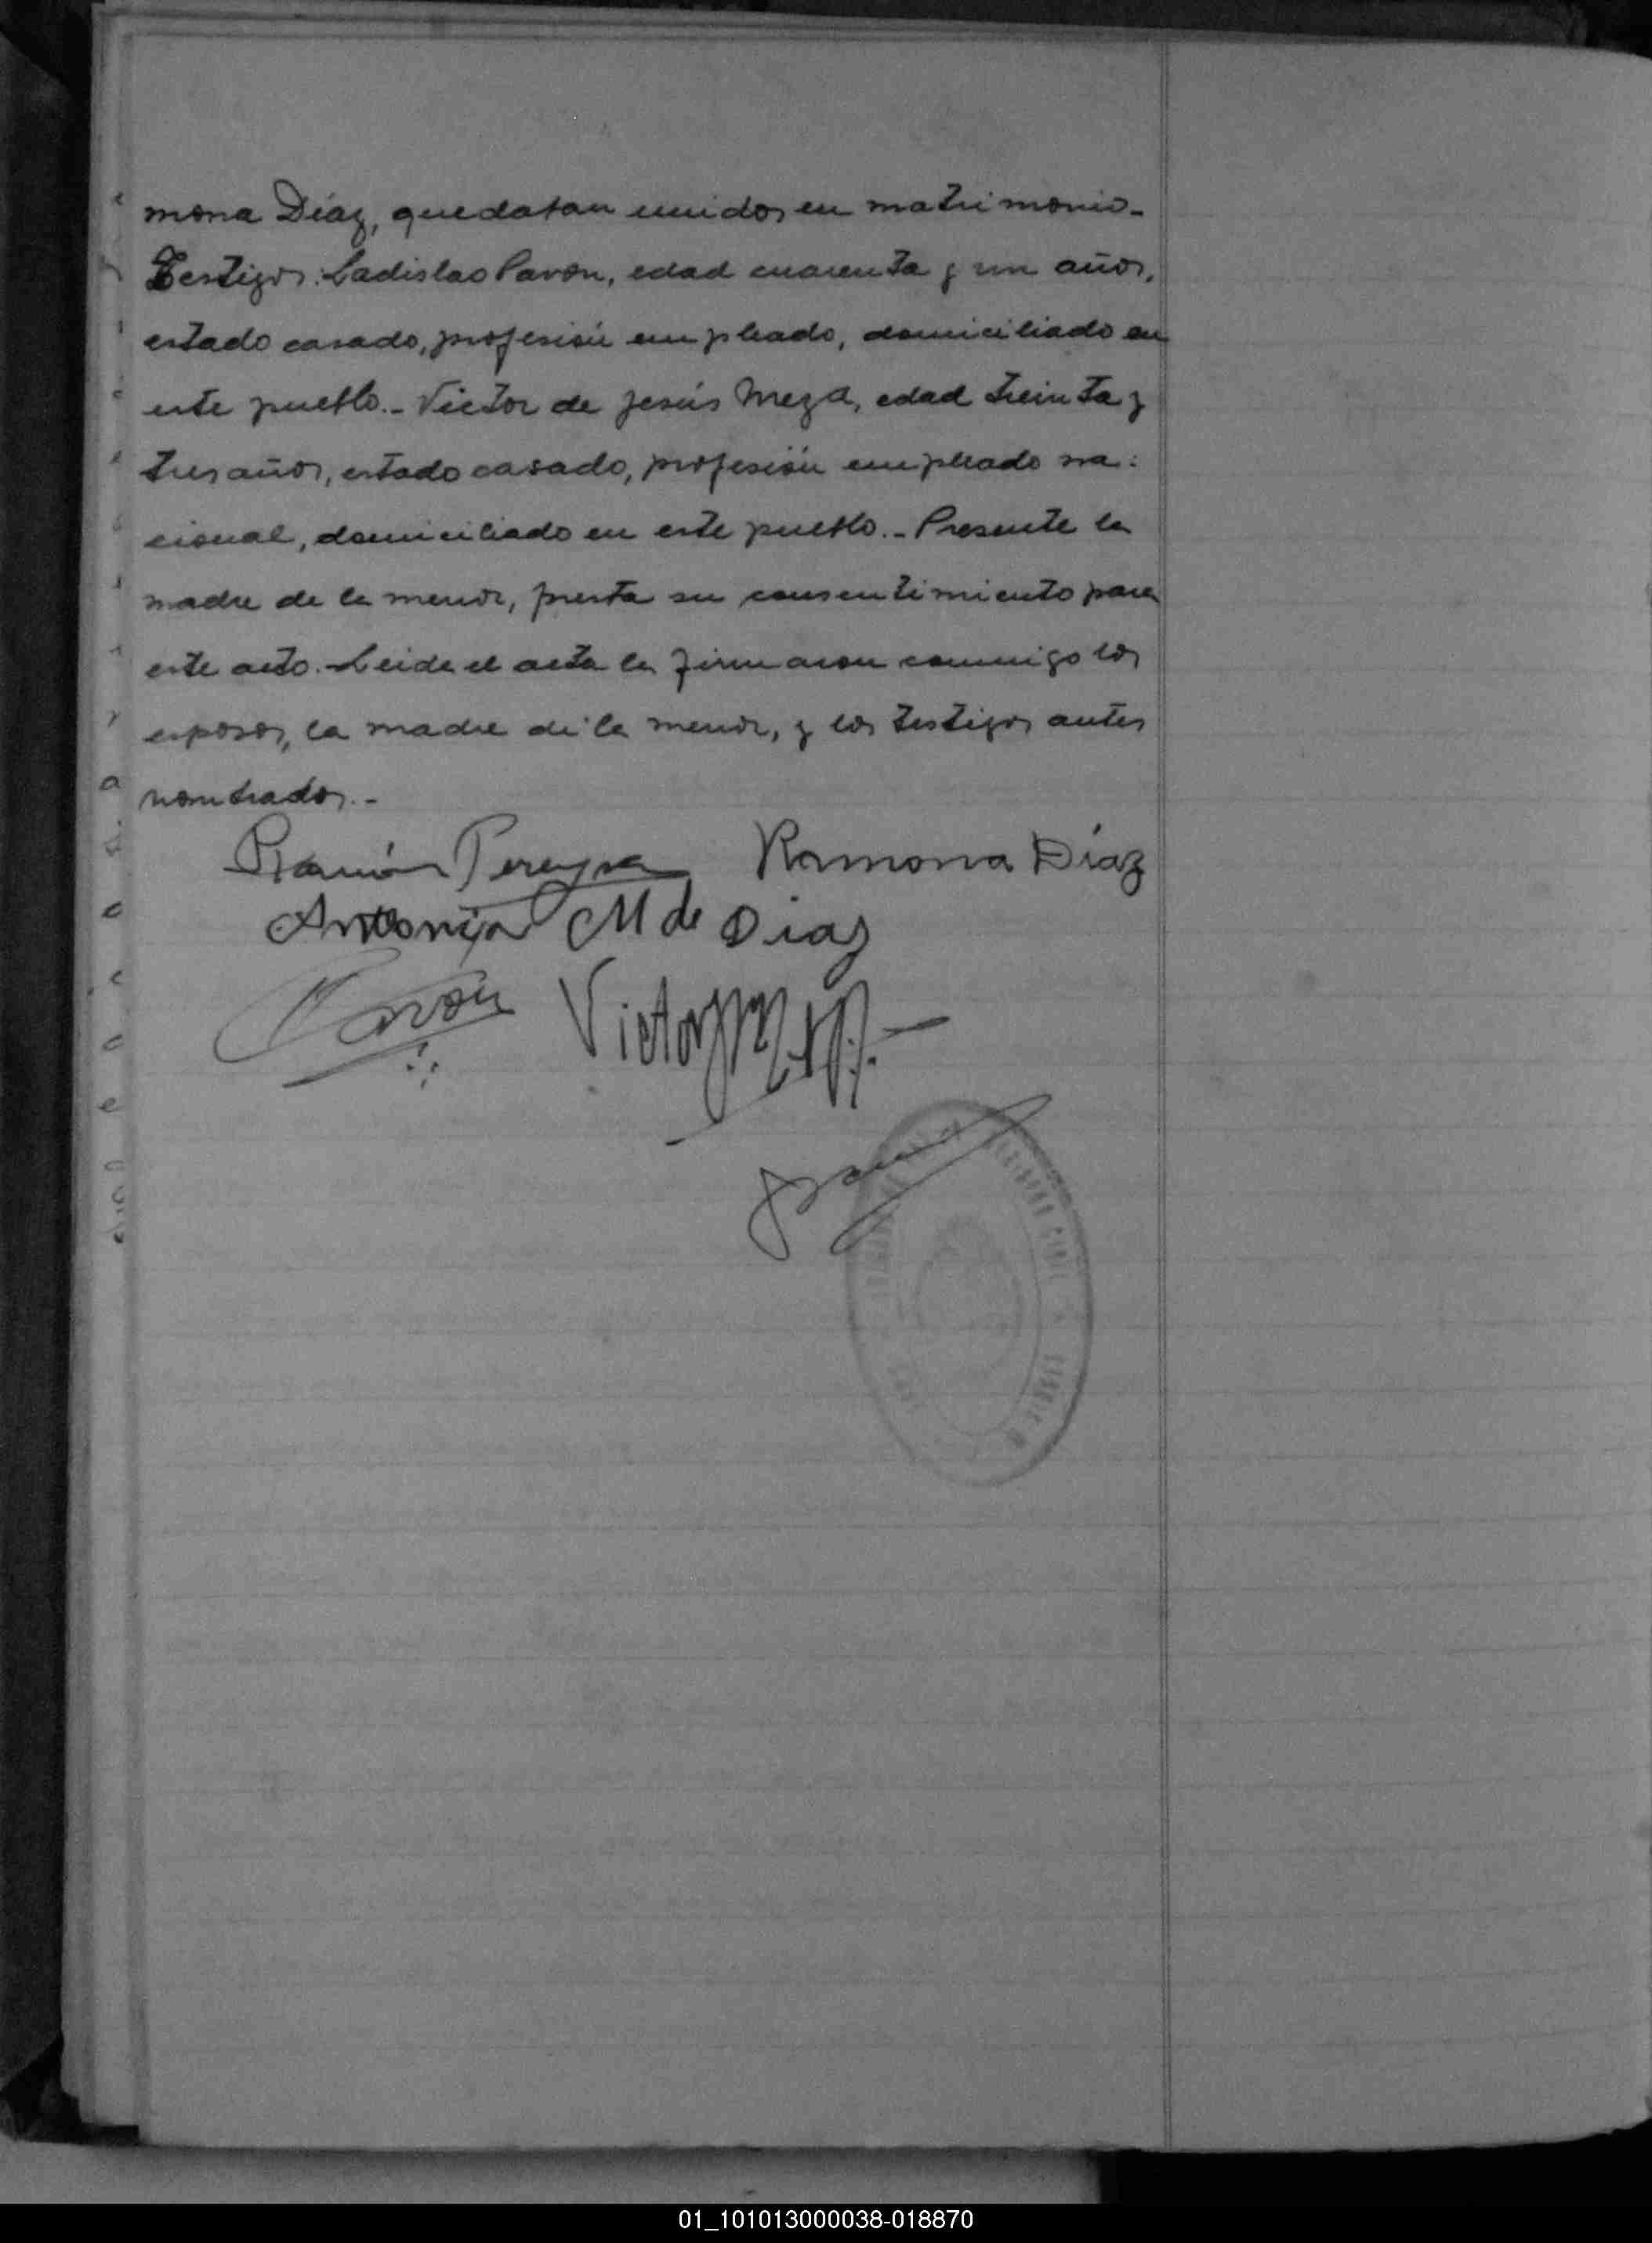 mona Díaz, quedaban unidos en matrimonio.-
Testigos: Ladislao Pavón, edad cuarenta y un años,
estado casado, profesión empleado, domiciliado en
este pueblo.- Victor de Jesús Meza, edad treinta y
tres años, estado casado, profesión empleado na-
cional, domiciliado en este pueblo.- Presente la
madre de la menor, presta su consentimiento para
este acto. Leida el acta la firmaron conmigo los
esposos, la madre de la menor, y los testigos antes
nombrados.-
Ramón Pereyra Ramona Díaz
Antonia M de Diaz
Pavón Victor
REGISTRO CIVIL
01_101013000038-018870